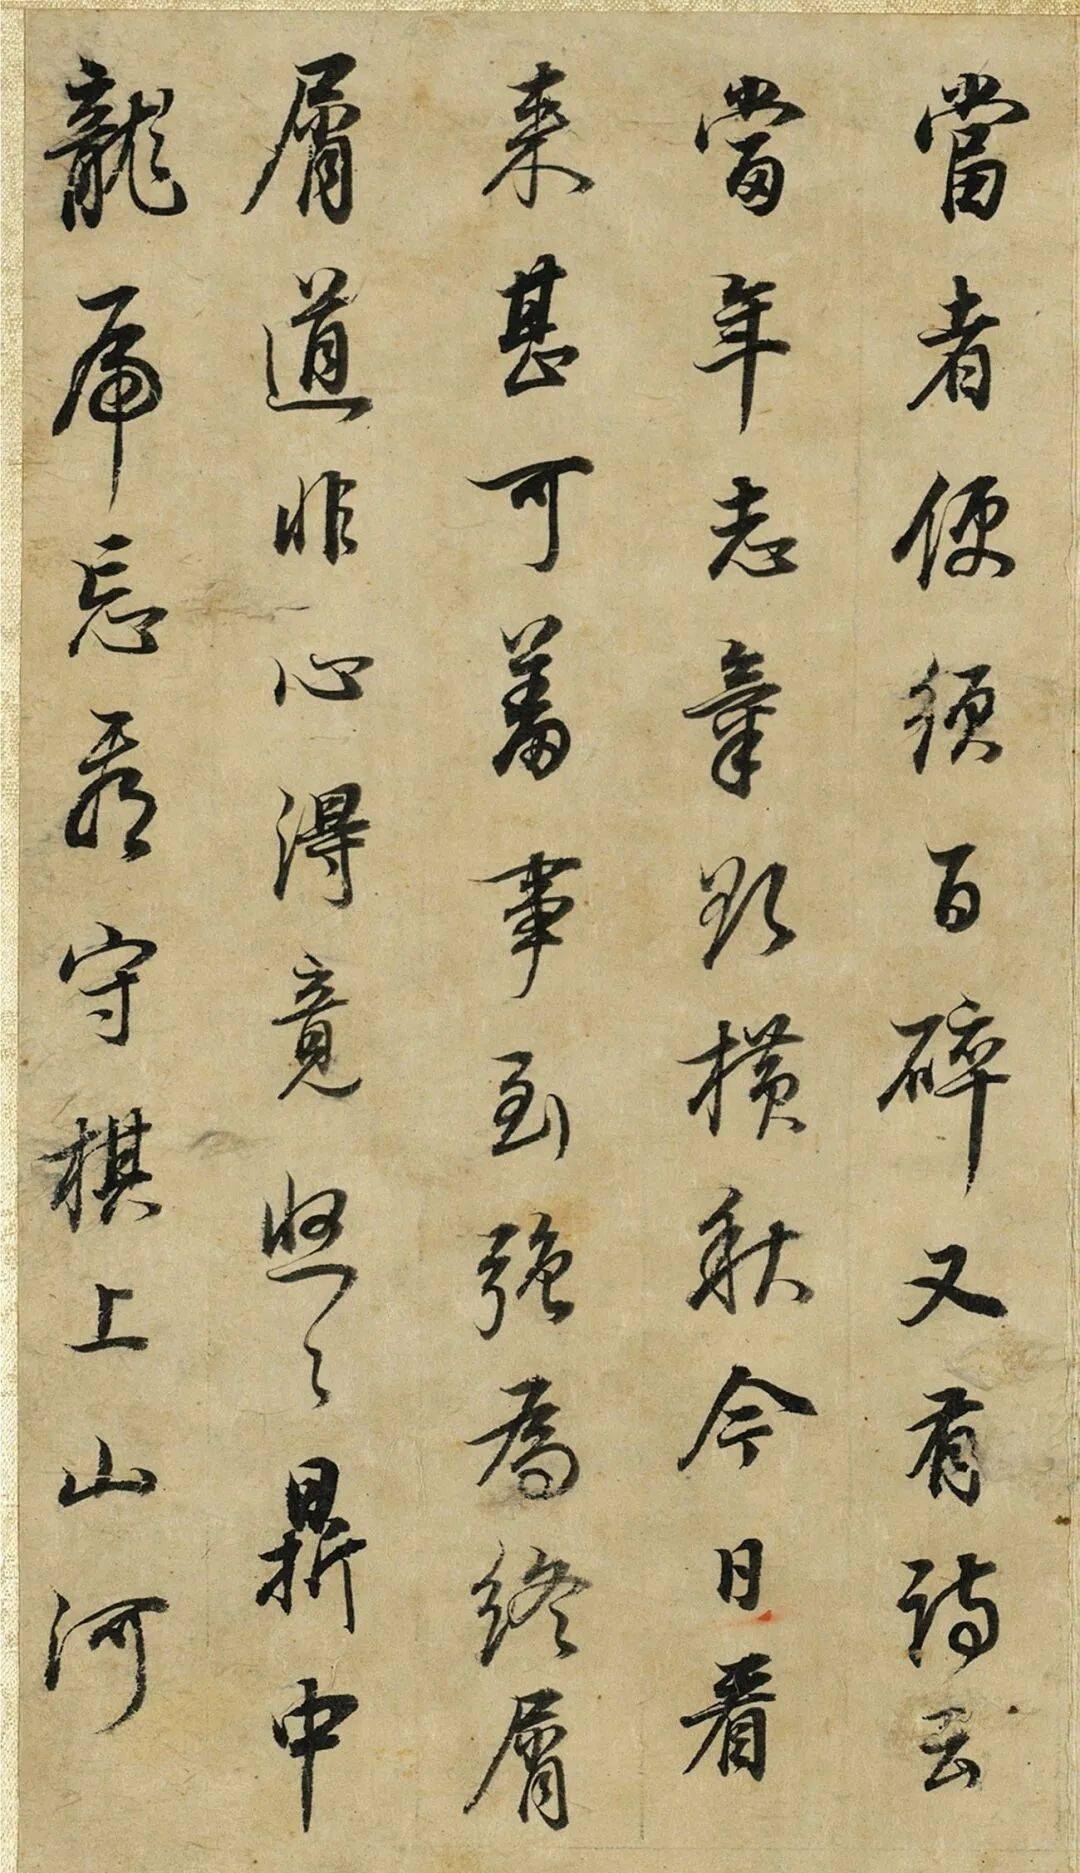 當者便須百碎又有詩云
當年志氣欲橫秋今日看
來甚可羞事到強爲終屑
屑道非心得竟悠〻鼎中
龍虎忘看守棋上山河